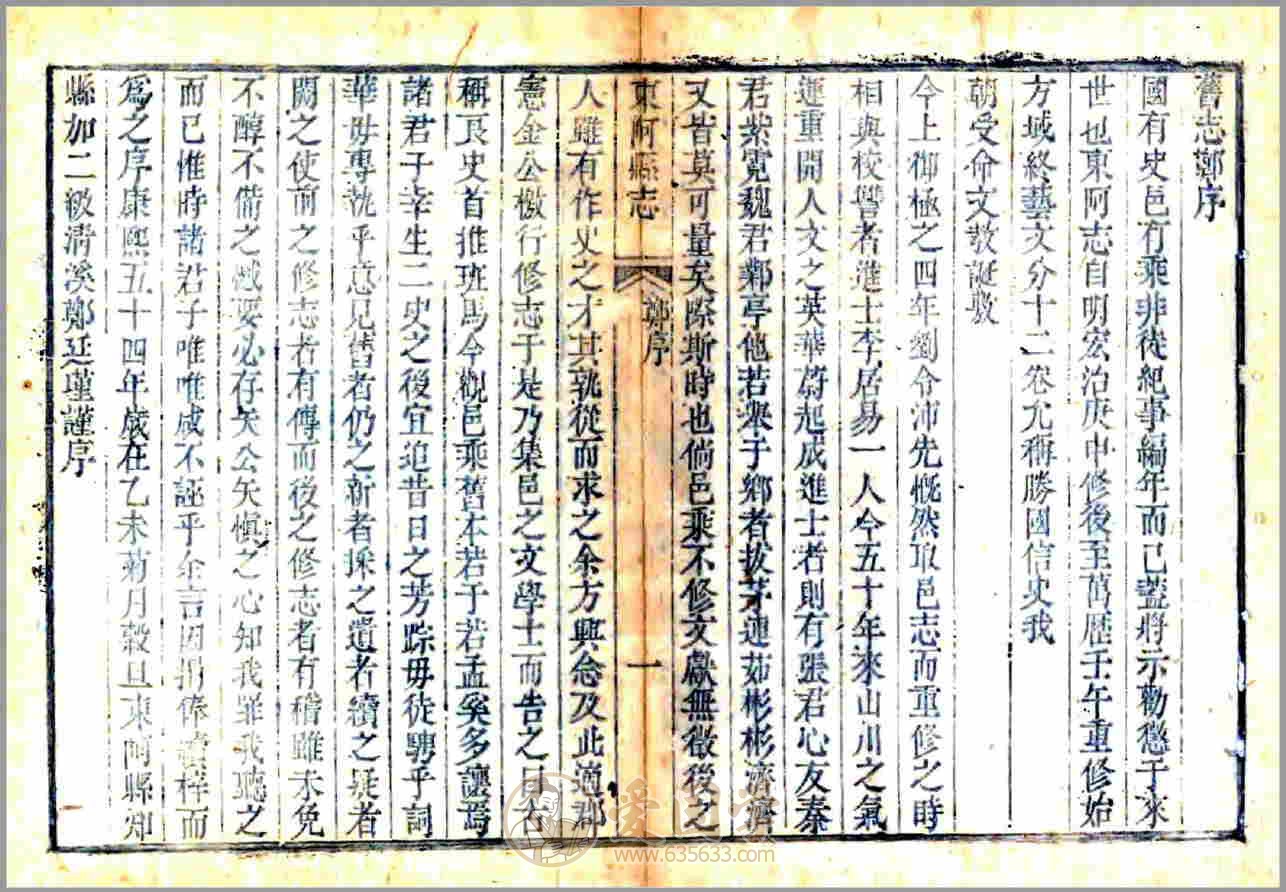 舊志鄭序
國有史邑有乘非徒紀事編年而已蓋將示勸懲于來
世也東阿志自明宏治庚申修後至萬歷壬午重修始
方域終藝文分十二卷允稱勝國信史我
朝受命文敎誕敷
今上御極之四年劉令沛先慨然取邑志而重修之時
相與校讐者進士李居易一人今五十年來山川之氣
運重開人文之英華蔚起成進士者則有張君心友秦
君紫霓魏君鄴亭他若舉于鄉者拔茅連茹彬彬濟濟
又皆莫可量矣際斯時也倘邑乘不修文獻無徵後之
東阿縣志
鄭序
一
人雖有作史之才其孰從而求之余方興念及此適郡
憲金公檄行修志于是乃集邑之文學士而告之曰古
稱良史首推班馬今觀邑乘舊本若于若孟奚多讓焉
諸君子幸生二史之後宜追昔日之芳踪毋徒騁乎詞
華毋專執乎意見舊者仍之新者採之遺者續之疑者
闕之使前之修志者有傳而後之修志者有稽雖未免
不醇不備之憾要必存矢公矢愼之心知我罪我聽之
而已惟時諸君子唯唯咸不誣乎余言因捐俸壽梓而
爲之序康熙五十四年歲在乙未菊月穀旦東阿縣知
縣加二級清溪鄭廷瑾謹序
www.635633.com